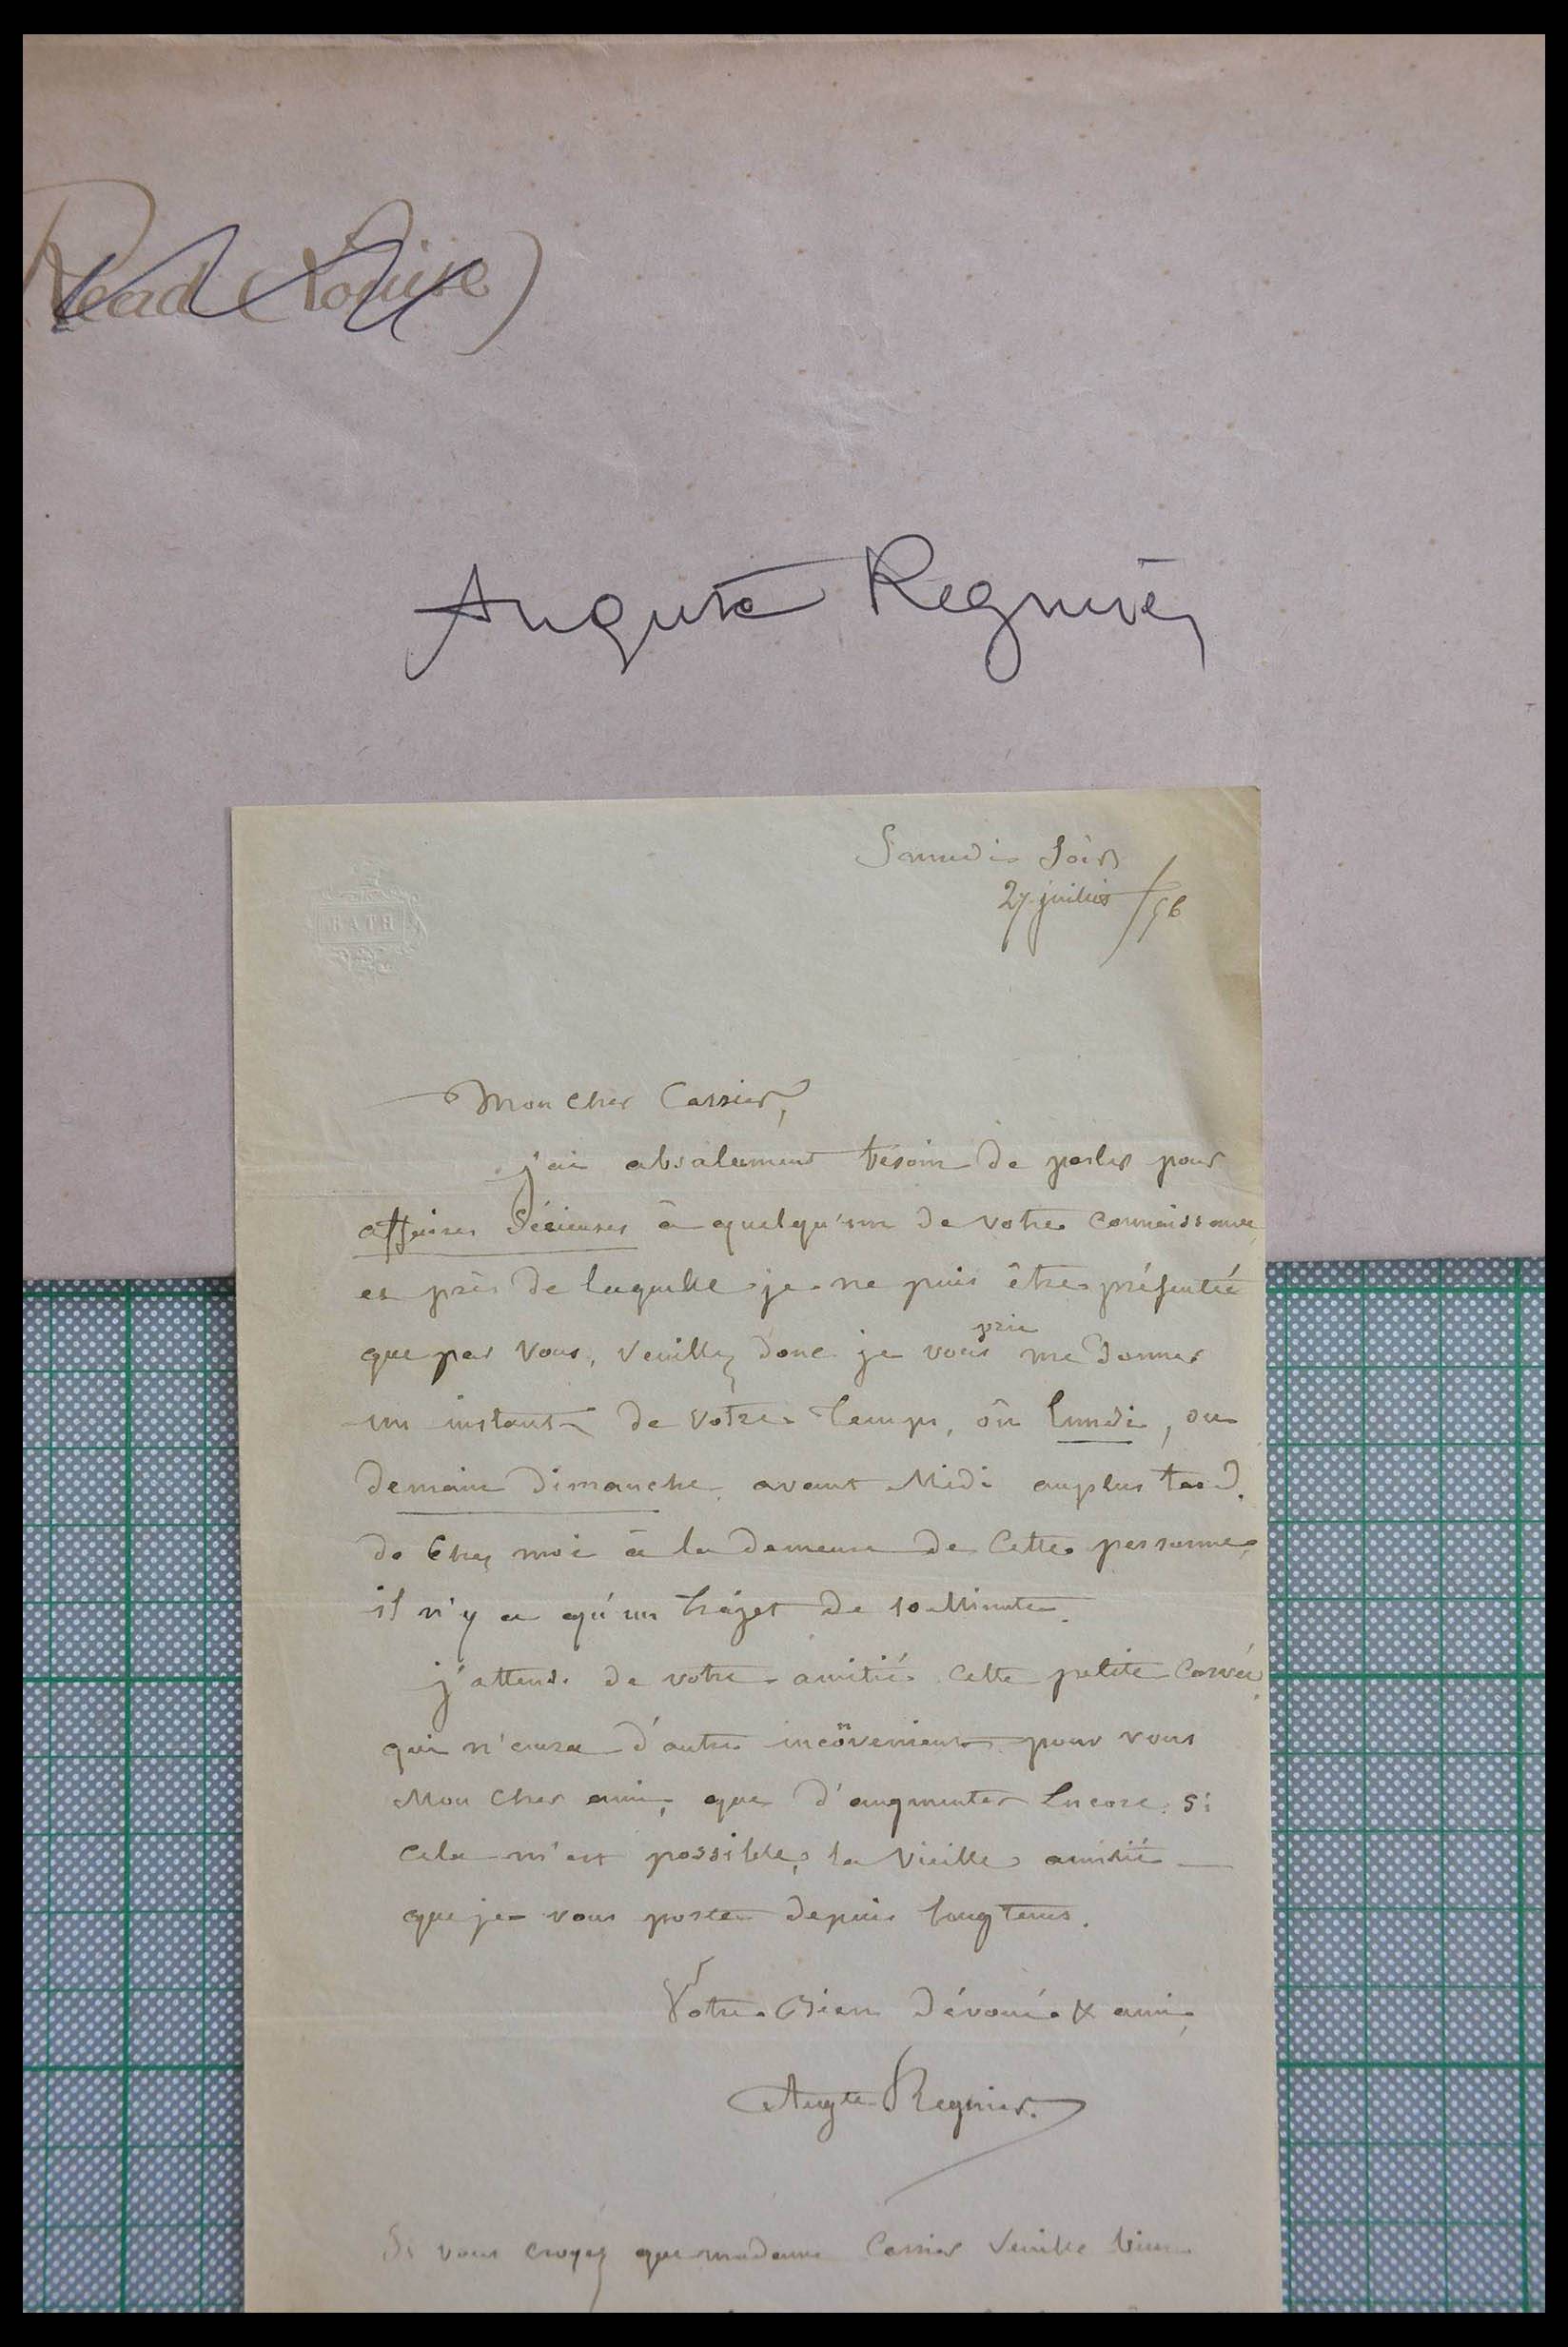 Read (Louise)
Auguste Regnier
BATH
Samedi Soir
27 juillet /56
Mon cher Carrier,
j'ai absolument besoin de parler pour
affaires Sérieuses à quelqu'un de votre connaissance
et près de laquelle je ne puis être présenté
que par vous, veuillez donc je vous prie me donner
un instant de votre temps, où lundi, ou
demain dimanche avant Midi au plus tard.
de chez moi à la demeure de cette personne,
il n'y a qu'un trajet de 10 Minutes.
j'attends de votre amitié cette petite corvée
qui n'aura d'autre inconvénient pour vous
Mon cher ami, que d'augmenter Encore si
cela m'est possible, la vieille amitié
que je vous porte depuis longtems.
Votre Bien dévoué & ami,
Augte Regnier.
Si vous croyez que madame Carrier veuille bien